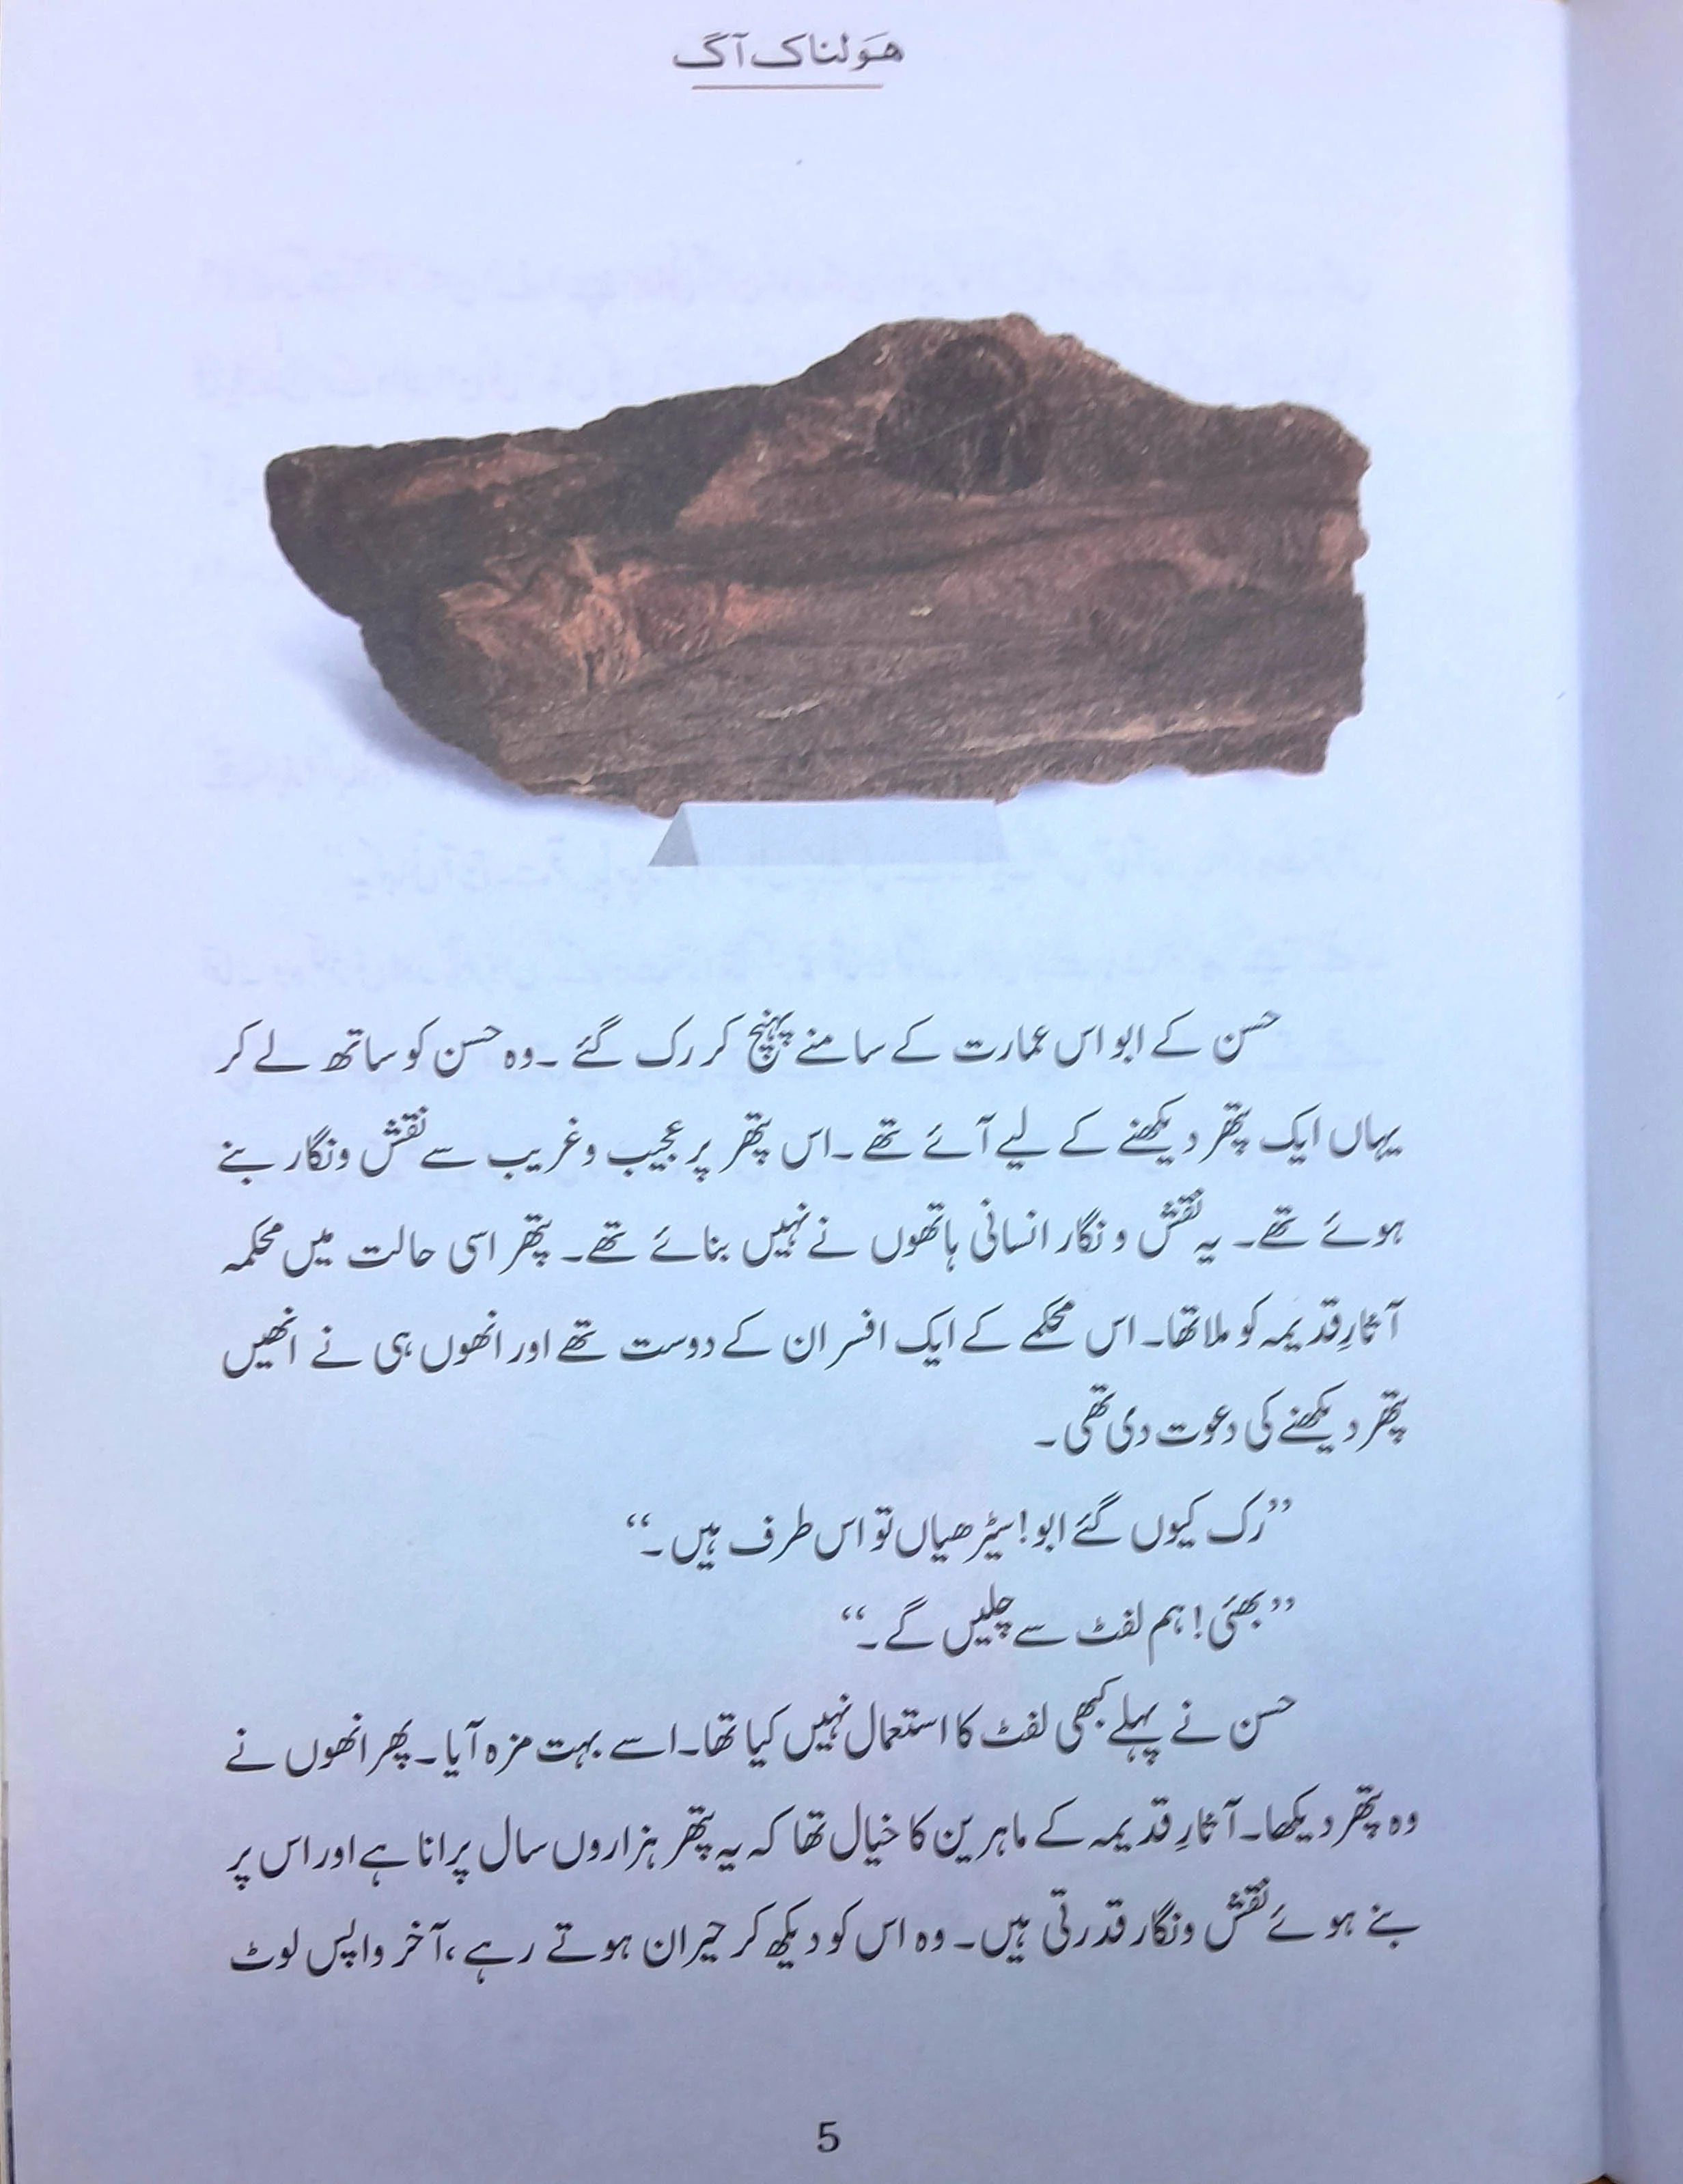 هَولناک آگ
حسن کے ابو اس عمارت کے سامنے پہنچ کر رک گئے ۔وہ حسن کو ساتھ لے کر
یہاں ایک پتھر دیکھنے کے لیے آئے تھے ۔اس پتھر پر عجیب و غریب سے نقش و نگار بنے
ہوئے تھے۔ یہ نقش و نگار انسانی ہاتھوں نے نہیں بنائے تھے۔ پتھر اسی حالت میں محکمہ
آثارِ قدیمہ کو ملا تھا۔ اس محکمے کے ایک افسر ان کے دوست تھے اور انھوں ہی نے انھیں
پتھر دیکھنے کی دعوت دی تھی ۔
”رک کیوں گئے ابو! سیڑھیاں تو اس طرف ہیں ۔“
”بھئی! ہم لفٹ سے چلیں گے ۔“
حسن نے پہلے کبھی لفٹ کا استعمال نہیں کیا تھا۔ اسے بہت مزہ آیا۔ پھر انھوں نے
وہ پتھر دیکھا۔ آثارِ قدیمہ کے ماہرین کا خیال تھا کہ یہ پتھر ہزاروں سال پرانا ہے اور اس پر
بنے ہوئے نقش و نگار قدرتی ہیں۔ وہ اس کو دیکھ کر حیران ہوتے رہے ، آخر واپس لوٹ
5